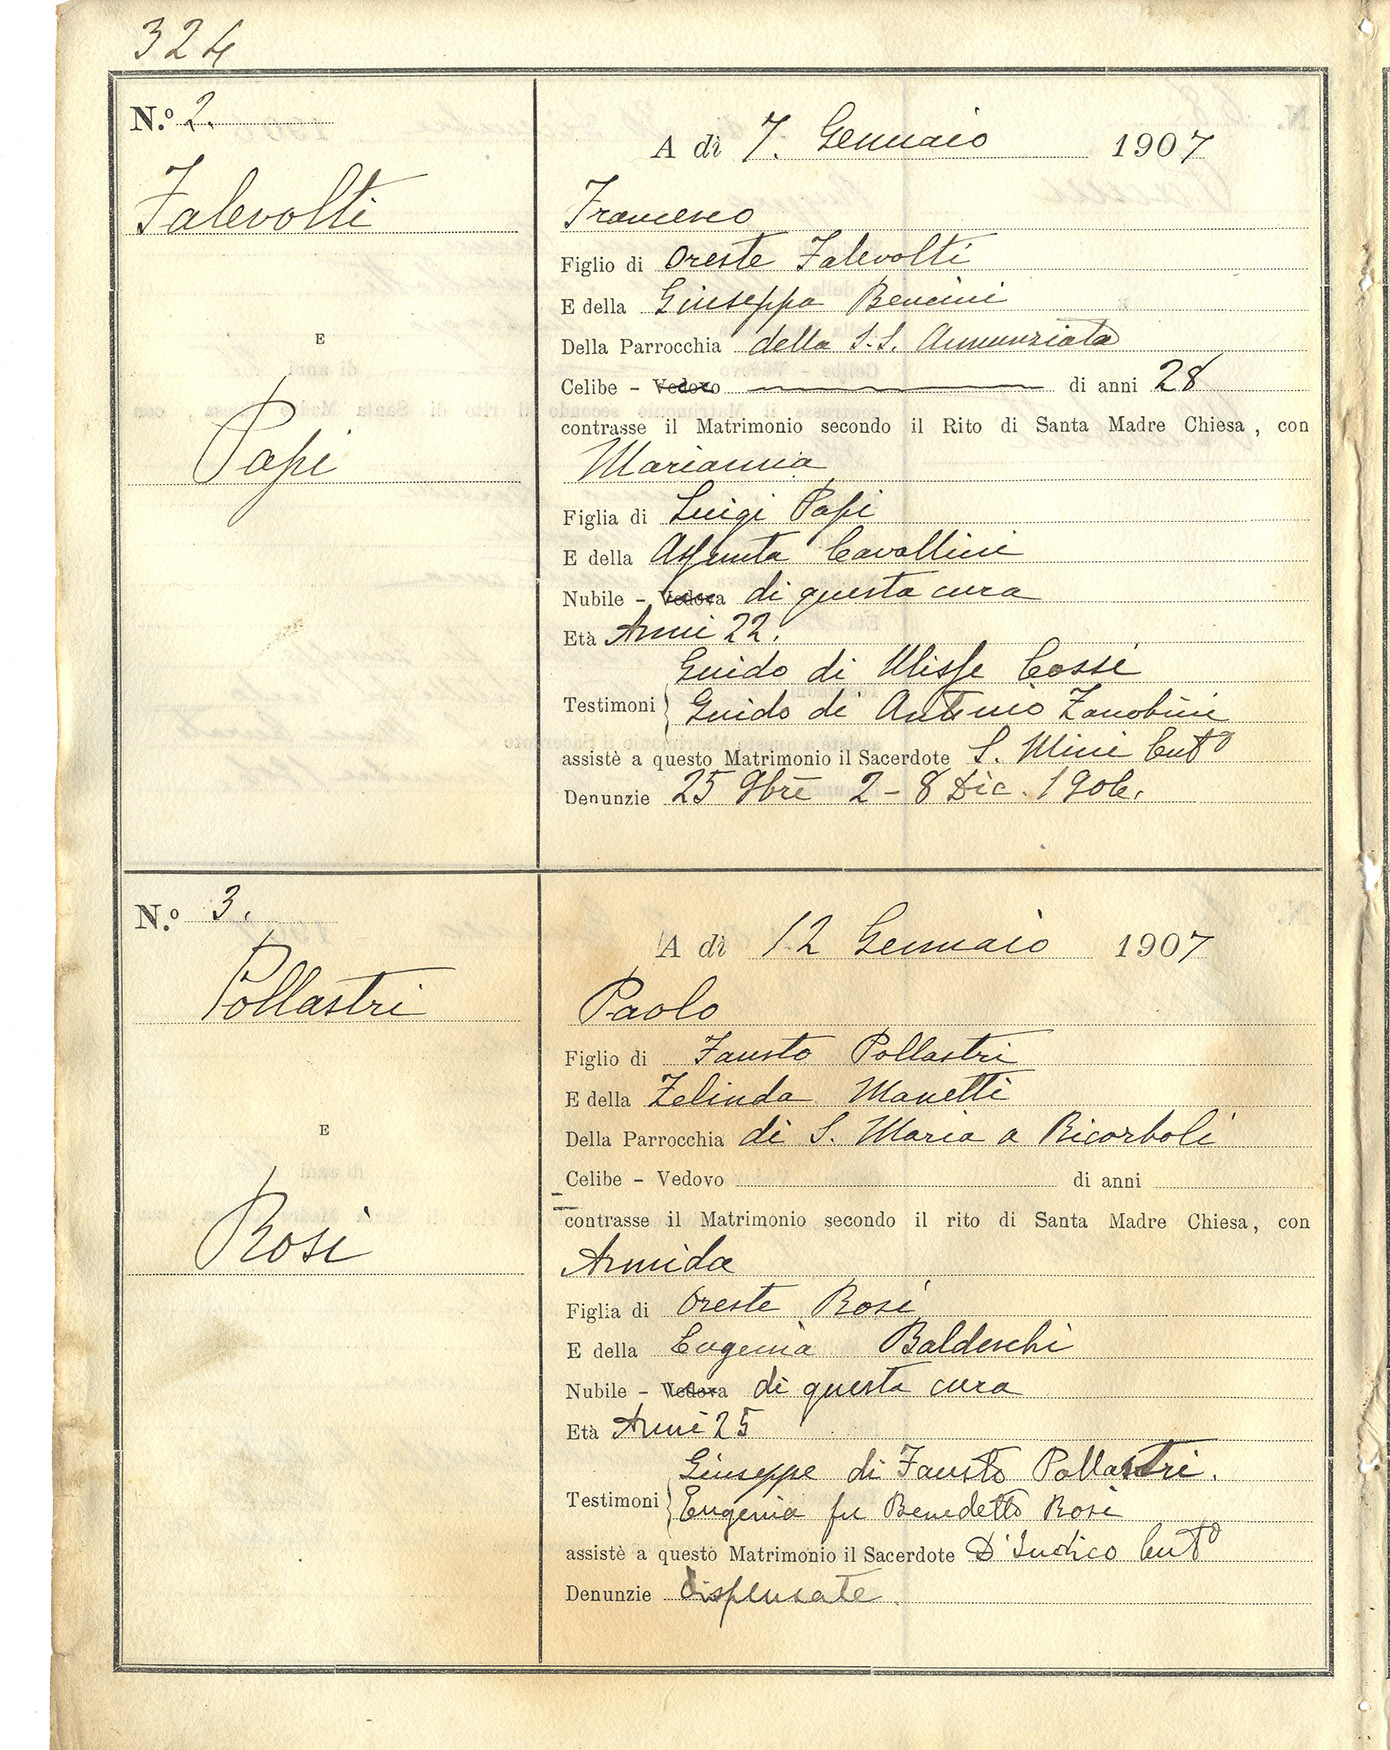 324
N.º 2.
Falevolti
E
Papi
A dì 7. Gennaio 1907
Francesco
Figlio di Oreste Falevolti
E della Giuseppa Bencini
Della Parrocchia della S.S. Annunziata
Celibe - Vedovo di anni 28
contrasse il Matrimonio secondo il Rito di Santa Madre Chiesa, con
Marianna
Figlia di Luigi Papi
E della Assunta Cavallini
Nubile - Vedova di questa cura
Età Anni 22.
Guido di Ulisse Cossi
Testimoni Guido di Antonio Zanobini
assistè a questo Matrimonio il Sacerdote S. Mini Curº
Denunzie 25 9bre 2 - 8 Dic. 1906.
N.º 3.
Pollastri
E
Rosi
A dì 12 Gennaio 1907
Paolo
Figlio di Fausto Pollastri
E della Zelinda Manetti
Della Parrocchia di S. Maria a Ricorboli
Celibe - Vedovo di anni
contrasse il Matrimonio secondo il rito di Santa Madre Chiesa, con
Armida
Figlia di Oreste Rosi
E della Eugenia Baldeschi
Nubile - Vedova di questa cura
Età Anni 25
Giuseppe di Fausto Pollastri.
Testimoni Eugenia fu Benedetto Rosi
assistè a questo Matrimonio il Sacerdote D'Indico Curº
Denunzie dispensate.